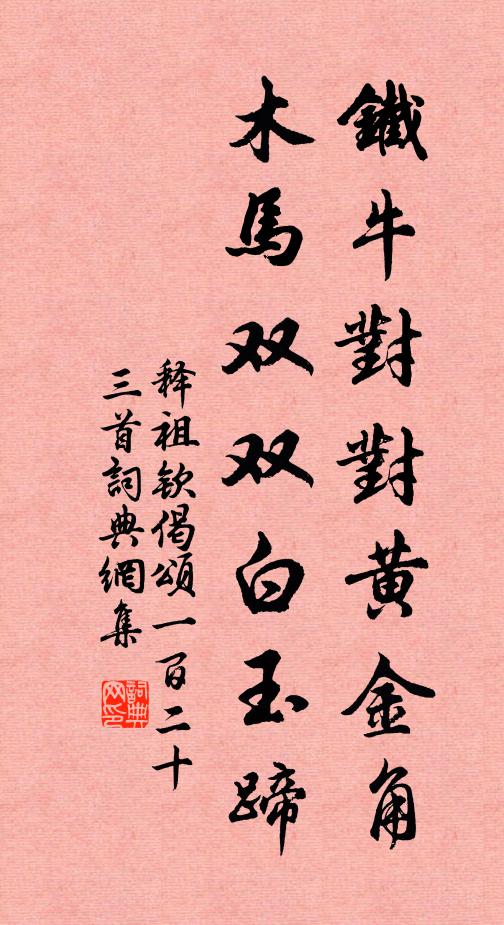 鐵牛對對黄金角
木馬双双白玉蹄
释祖欽偈頌一百二十
三首詞典網集
詞典网印